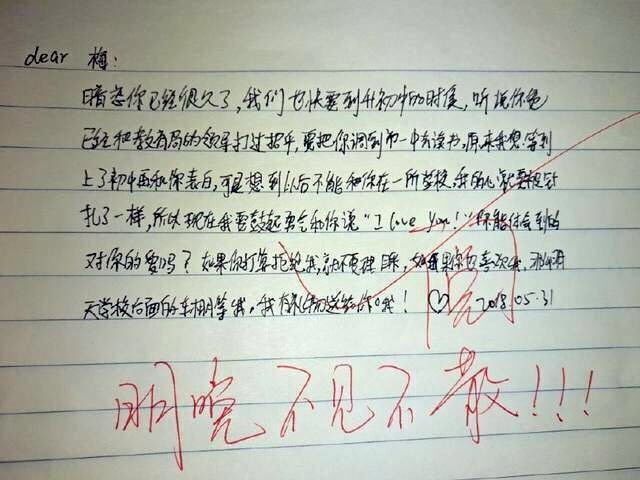 dear 梅：
暗恋你已经很久了，我们也快要到升初中的时候，听说你爸
已经和教育局的领导打过招乎，要把你调到市一中去读书，原来我想等到
上了初中再和你表白，可是想到以后不能和你在一所学校，我的心就要被针
扎了一样，所以现在我要鼓起勇气和你说“I love you！”你能体会到的
对你的爱吗？如果你打算拒绝我，就不要理睬，如果你也喜欢我，明
天学校后面的车棚等我，我有礼物送给你哦！♡ 2018.05.31
阅
明晚不见不散！！！